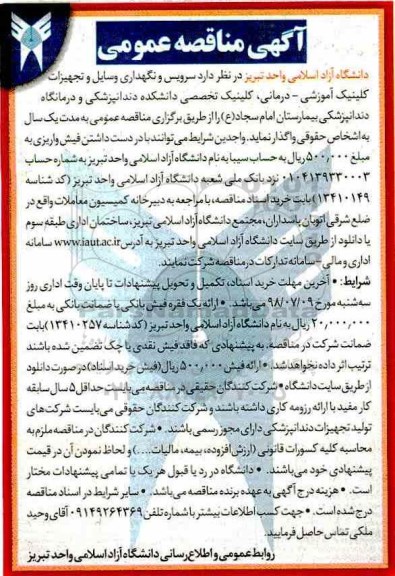 آگهی مناقصه عمومی
دانشگاه آزاد اسلامی واحد تبریز در نظر دارد سرویس و نگهداری وسایل و تجهیزات
کلینیک آموزشی - درمانی، کلینیک تخصصی دانشکده دندانپزشکی و درمانگاه
دندانپزشکی بیمارستان امام سجاد(ع) را از طریق برگزاری مناقصه عمومی به مدت یک سال
به اشخاص حقوقی واگذار نماید. واجدین شرایط می‌توانند با در دست داشتن فیش واریزی به
مبلغ ۵۰۰,۰۰۰ ریال به حساب سیبا به نام دانشگاه آزاد اسلامی واحد تبریز به شماره حساب
۰۱۰۴۱۳۹۳۳۰۰۰۳ نزد بانک ملی شعبه دانشگاه آزاد اسلامی واحد تبریز (کد شناسه
۱۳۴۱۰۱۴۹) بابت خرید اسناد مناقصه، با مراجعه به دبیرخانه کمیسیون معاملات واقع در
ضلع شرقی اتوبان پاسداران، مجتمع دانشگاه آزاد اسلامی تبریز، ساختمان اداری طبقه سوم
یا دانلود از طریق سایت دانشگاه آزاد اسلامی واحد تبریز به آدرس www.iaut.ac.ir سامانه
اداری و مالی - سامانه تدارکات در مناقصه شرکت نمایند.
شرایط: • آخرین مهلت خرید اسناد، تکمیل و تحویل پیشنهادات تا پایان وقت اداری روز
سه‌شنبه مورخ ۹۸/۰۷/۰۹ می‌باشد. • ارائه یک فقره فیش بانکی یا ضمانت بانکی به مبلغ
۲۰,۰۰۰,۰۰۰ ریال به نام دانشگاه آزاد اسلامی واحد تبریز (کد شناسه ۱۳۴۱۰۲۵۷) بابت
ضمانت شرکت در مناقصه، به پیشنهادی که فاقد فیش نقدی یا چک تضمین شده باشند
ترتیب اثر داده نخواهد شد. • ارائه فیش ۵۰۰,۰۰۰ ریال (فیش خرید اسناد) در صورت دانلود
از طریق سایت دانشگاه • شرکت کنندگان حقیقی در مناقصه می‌بایست حداقل ۵ سال سابقه
کار مفید با ارائه رزومه کاری داشته باشند و شرکت کنندگان حقوقی می‌بایست شرکت‌های
تولید تجهیزات دندانپزشکی دارای مجوز رسمی باشند. • شرکت کنندگان در مناقصه ملزم به
محاسبه کلیه کسورات قانونی (ارزش افزوده، بیمه، مالیات....) و لحاظ نمودن آن در قیمت
پیشنهادی خود می‌باشند. • دانشگاه در رد یا قبول هر یک یا تمامی پیشنهادات مختار
است. • هزینه درج آگهی به عهده برنده مناقصه می‌باشد. • سایر شرایط در اسناد مناقصه
درج شده است. • جهت کسب اطلاعات بیشتر با شماره تلفن ۰۹۱۴۹۲۶۴۳۶۹ آقای وحید
ملکی تماس حاصل فرمایید.
روابط عمومی و اطلاع رسانی دانشگاه آزاد اسلامی واحد تبریز